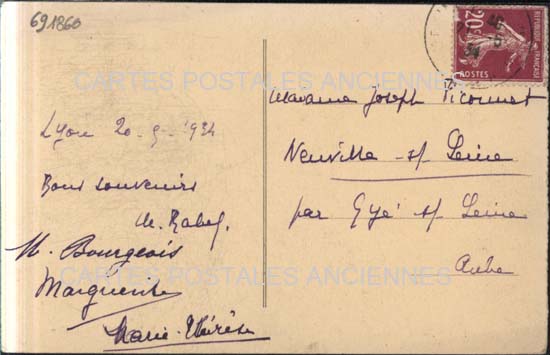 691860
20c
POSTES
CARTES POSTALES ANCIENNES
Lyon 20-9-1934
Bons souvenirs
de
M. Bourgeois
Marguerite
Marie-Thérèse
Madame Joseph
Neuville s/ Seine
par Gyé s/ Seine
Aube
CARTES POSTALES ANCIENNES